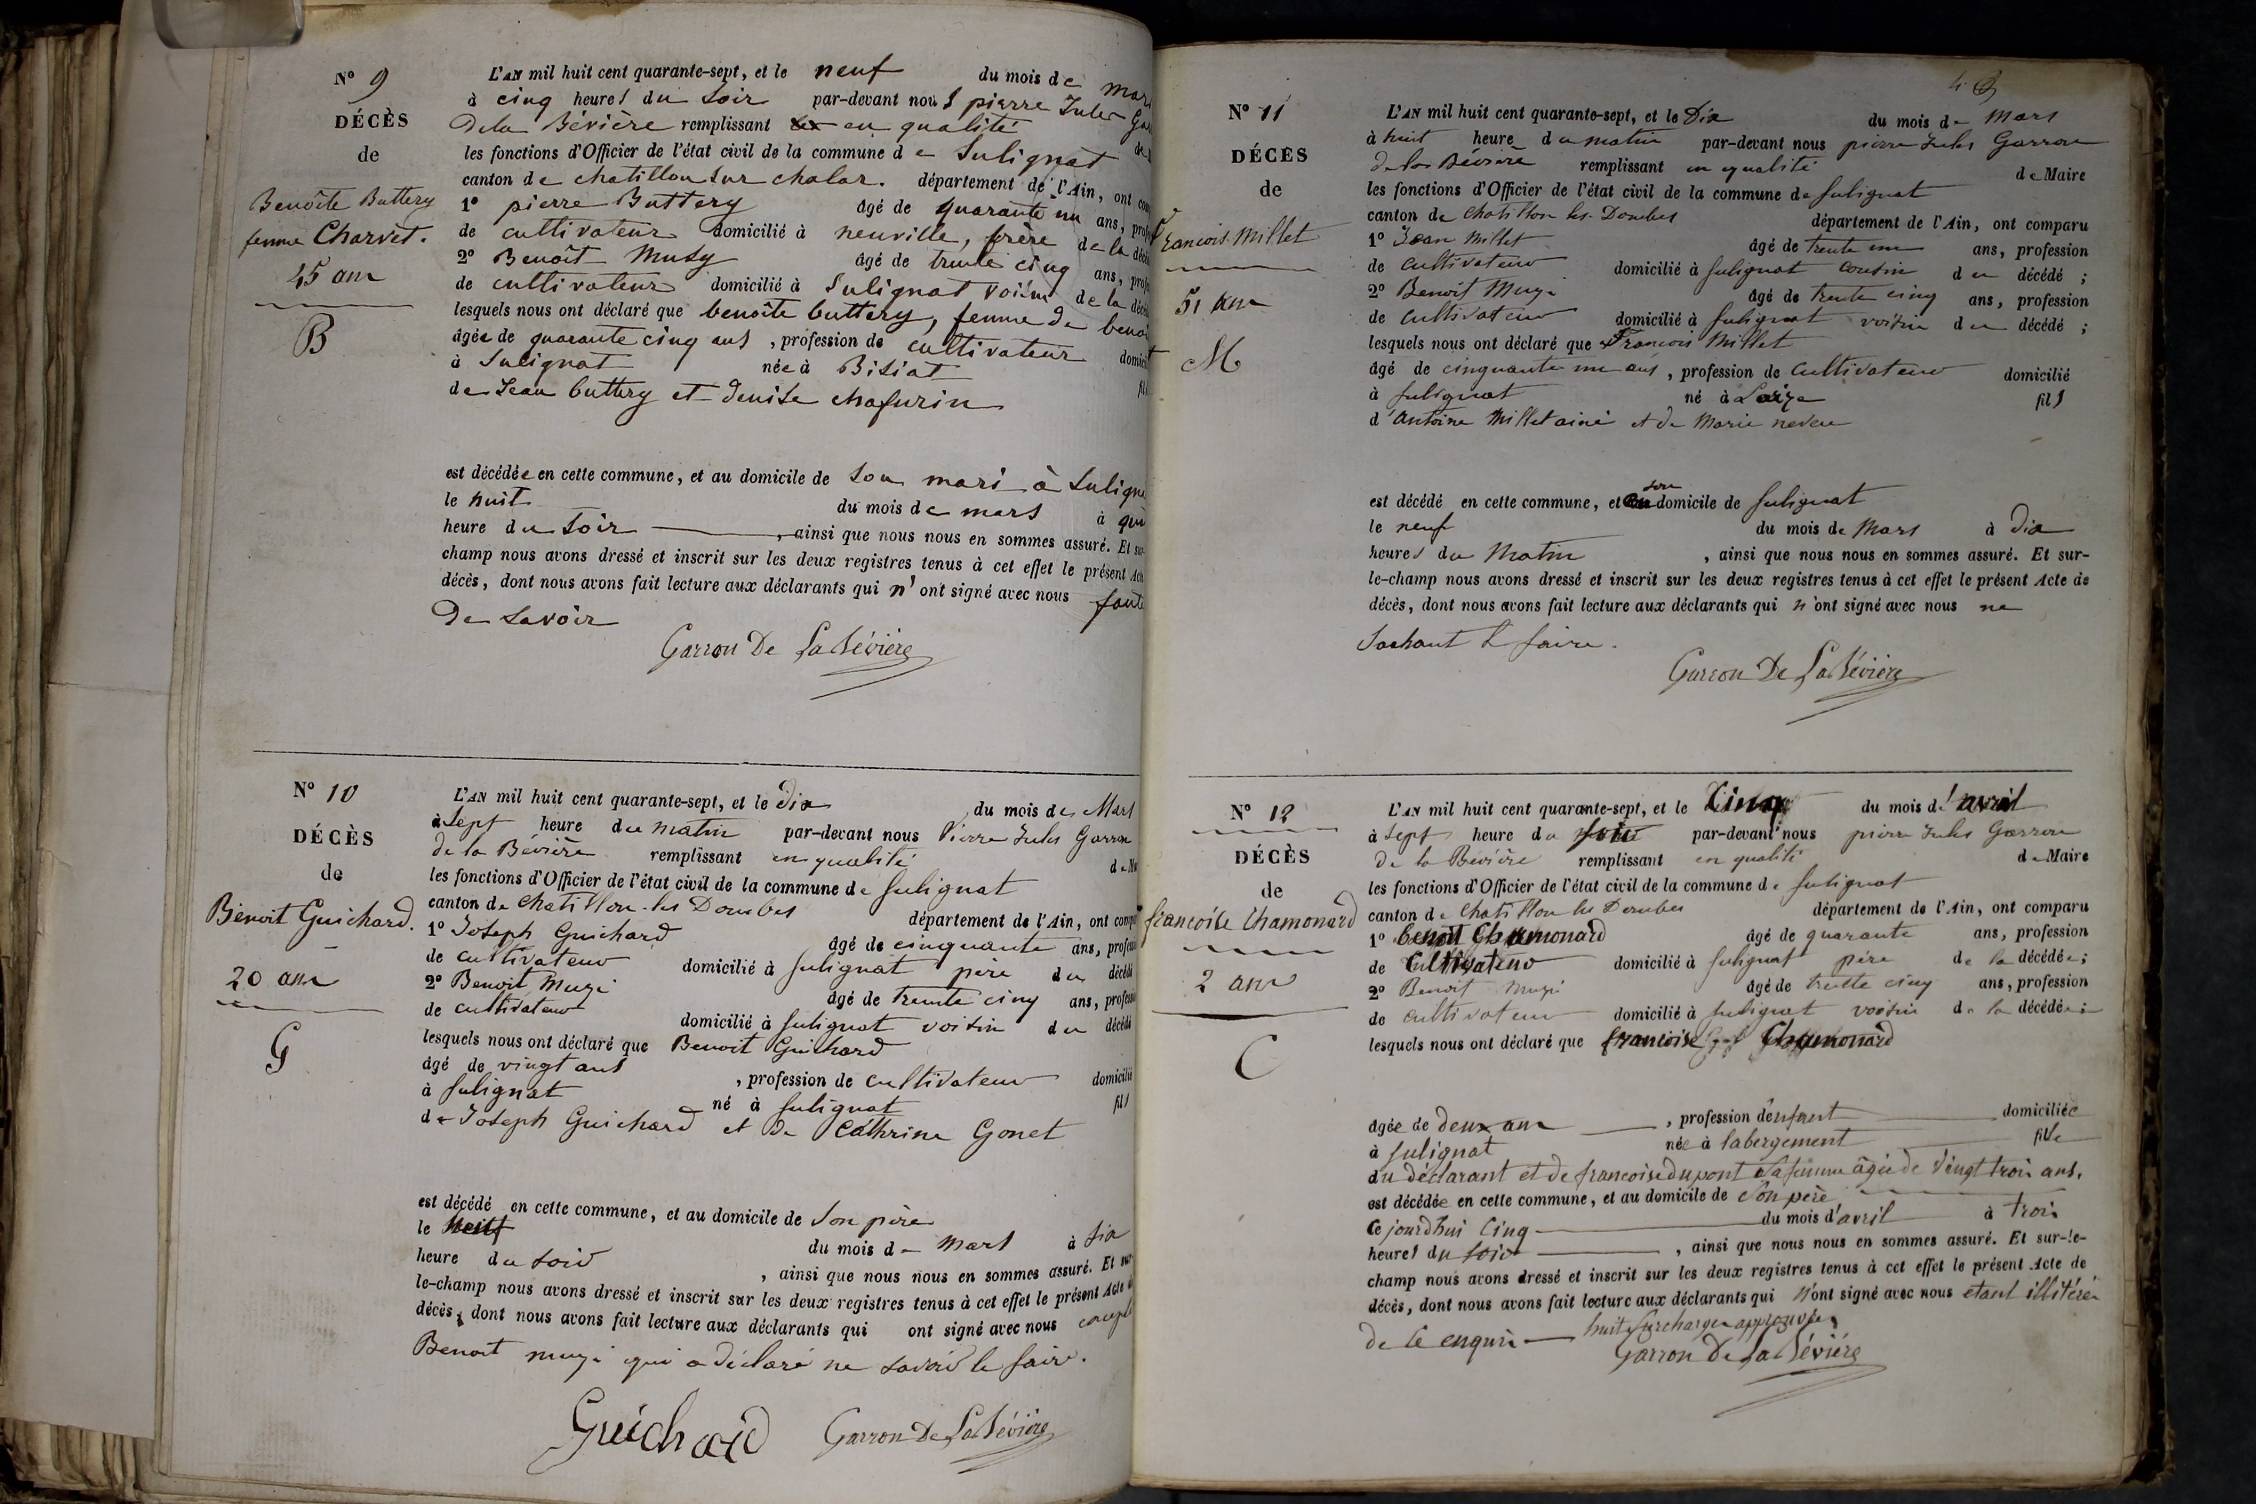 N° 9
DÉCÈS
de
Benoîte Buttery
femme Charvet.
45 ans
B
L'AN mil huit cent quarante-sept, et le neuf du mois de mars
à cinq heures du soir par-devant nous pierre Jules
De la Bévière remplissant en qualité
les fonctions d'Officier de l'état civil de la commune de Sulignat
canton de chatillon sur chalar. département de l'Ain, ont
1° pierre Buttery âgé de quarante un ans,
de cultivateur domicilié à neuville, frère de la
2° Benoît Muzy âgé de trente cinq ans,
de cultivateur domicilié à Sulignat voisin de la
lesquels nous ont déclaré que benoîte buttery, femme de
âgée de quarante cinq ans, profession de cultivateur
à Sulignat née à Bisiat
de Jean buttery et denise chafurin
est décédée en cette commune, et au domicile de son mari à
le huit du mois de mars à
heure du soir, ainsi que nous nous en sommes assuré. Et
champ nous avons dressé et inscrit sur les deux registres tenus à cet effet le présent Acte
décès, dont nous avons fait lecture aux déclarants qui n'ont signé avec nous faute
De savoir
Garron De La Bévière
N° 10
DÉCÈS
de
Benoit Guichard.
20 ans
G
L'AN mil huit cent quarante-sept, et le dix du mois de Mars
à sept heure du matin par-devant nous Pierre Jules Garron
de la Bévière remplissant en qualité
les fonctions d'Officier de l'état civil de la commune de Sulignat
canton de Chatillon-les Dombes département de l'Ain, ont
1° Joseph Guichard âgé de cinquante ans,
de cultivateur domicilié à Sulignat père du décédé
2° Benoit Muzi âgé de trente cinq ans,
de cultivateur domicilié à Sulignat voisin du décédé
lesquels nous ont déclaré que Benoit Guichard
âgé de vingt ans, profession de cultivateur domicilié
à Sulignat né à Sulignat fils
de Joseph Guichard et de Cathrine Gonet
est décédé en cette commune, et au domicile de son père
le neuf du mois de Mars à six
heure du soir, ainsi que nous nous en sommes assuré. Et
le-champ nous avons dressé et inscrit sur les deux registres tenus à cet effet le présent Acte
décès, dont nous avons fait lecture aux déclarants qui ont signé avec nous
Benoit muzi qui a déclaré ne savoir le faire.
Guichard Garron De La Bévière
N° 11
DÉCÈS
de
François Millet
51 ans
M
L'AN mil huit cent quarante-sept, et le Dix du mois de Mars
à huit heure du matin par-devant nous pierre Jules Garron
de la Bévière remplissant en qualité de Maire
les fonctions d'Officier de l'état civil de la commune de Sulignat
canton de Chatillon les-Dombes département de l'Ain, ont comparu
1° Jean Millet âgé de trente un ans, profession
de cultivateur domicilié à Sulignat cousin du décédé ;
2° Benoit Muzi âgé de trente cinq ans, profession
de cultivateur domicilié à Sulignat voisin du décédé ;
lesquels nous ont déclaré que François Millet
âgé de cinquante un ans, profession de cultivateur domicilié
à Sulignat né à Laize fils
d'Antoine Millet ainé et de Marie neveu
est décédé en cette commune, et son domicile de Sulignat
le neuf du mois de Mars à dix
heures du Matin, ainsi que nous nous en sommes assuré. Et sur-
le-champ nous avons dressé et inscrit sur les deux registres tenus à cet effet le présent Acte de
décès, dont nous avons fait lecture aux déclarants qui n'ont signé avec nous ne
sachant le faire.
Garron De La Bévière
N° 12
DÉCÈS
de
françoise Chamonard
2 ans
C
L'AN mil huit cent quarante-sept, et le Cinq du mois d'avril
à sept heure du soir par-devant nous pierre Jules Garron
de la Bévière remplissant en qualité de Maire
les fonctions d'Officier de l'état civil de la commune de Sulignat
canton de Chatillon les Dombes département de l'Ain, ont comparu
1° benoit Chamonard âgé de quarante ans, profession
de Cultivateur domicilié à Sulignat père de la décédée ;
2° Benoit Muzi âgé de trente cinq ans, profession
de cultivateur domicilié à Sulignat voisin de la décédée ;
lesquels nous ont déclaré que françoise Chamonard
âgée de deux ans, profession d'enfant domiciliée
à Sulignat née à labergement fille
du déclarant et de françoise dupont sa femme âgée de vingt trois ans,
est décédée en cette commune, et au domicile de son père
Ce jourd'hui Cinq du mois d'avril à trois
heures du soir, ainsi que nous nous en sommes assuré. Et sur-le-
champ nous avons dressé et inscrit sur les deux registres tenus à cet effet le présent Acte de
décès, dont nous avons fait lecture aux déclarants qui n'ont signé avec nous étant illitérés
de ce enquis huit surcharges approuvées
Garron De La Bévière